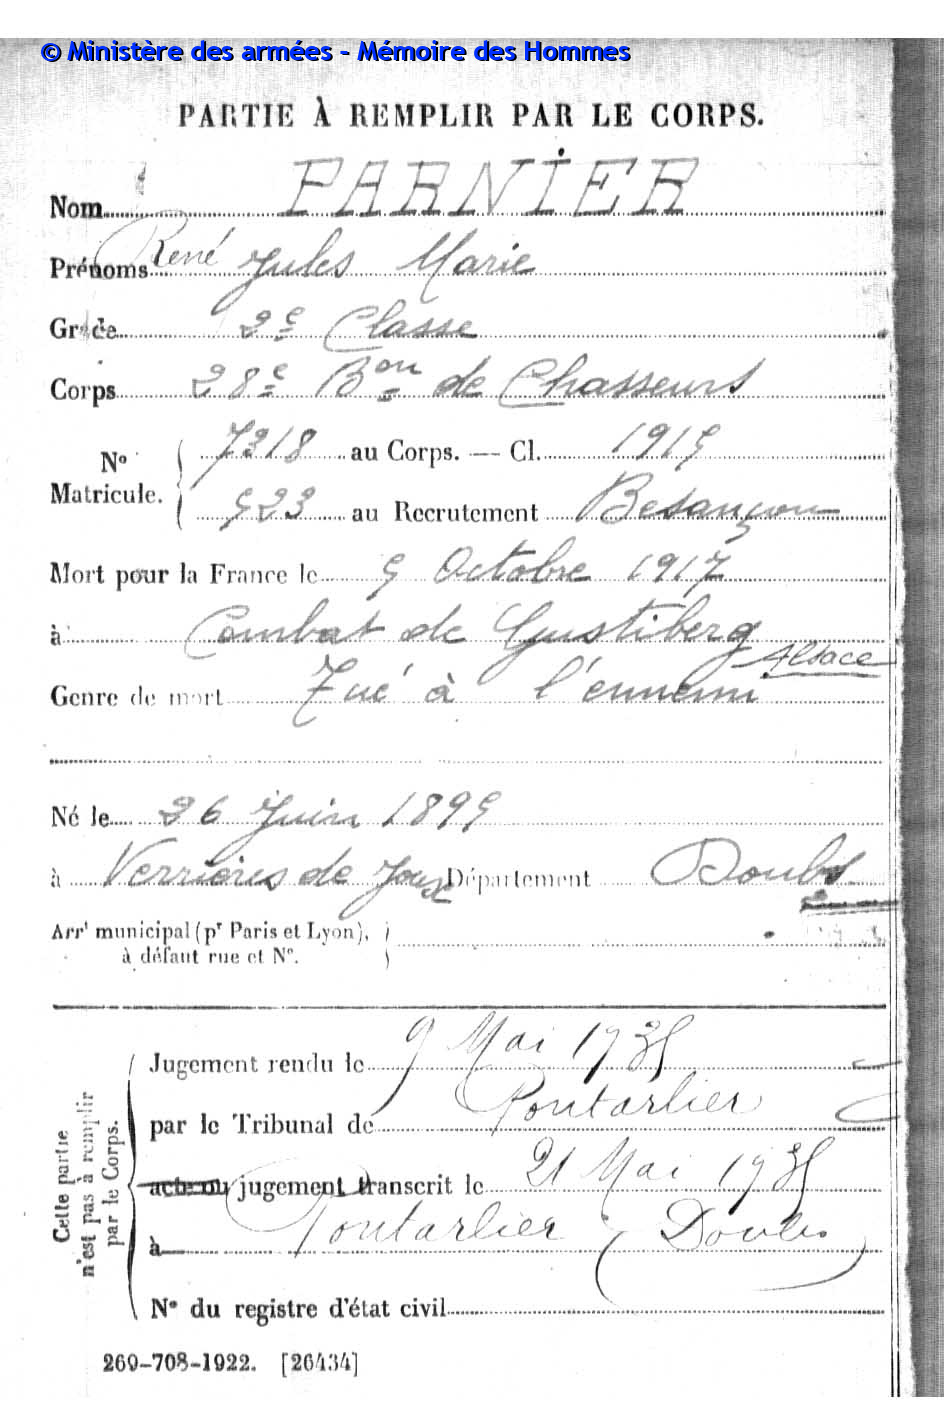 © Ministère des armées - Mémoire des Hommes
PARTIE À REMPLIR PAR LE CORPS.
Nom PARNIER
Prénoms René Jules Marie
Grade 2e Classe
Corps 28e Bon de Chasseurs
No Matricule. 7318 au Corps. — Cl. 1915
523 au Recrutement Besançon
Mort pour la France le 5 Octobre 1917
à Combat de Gustiberg Alsace
Genre de mort Tué à l'ennemi
Né le 26 Juin 1895
à Verrières de Joux Département Doubs
Arrt municipal (pr Paris et Lyon),
à défaut rue et No.
Cette partie n'est pas à remplir par le Corps.
Jugement rendu le 9 Mai 1935
par le Tribunal de Pontarlier
acte ou jugement transcrit le 21 Mai 1935
à Pontarlier (Doubs
No du registre d'état civil
269-708-1922. [26434]